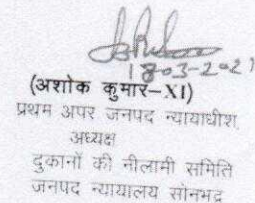 18-03-2021
(अशोक कुमार-XI)
प्रथम अपर जनपद न्यायाधीश,
अध्यक्ष
दुकानों की नीलामी समिति
जनपद न्यायालय सोनभद्र